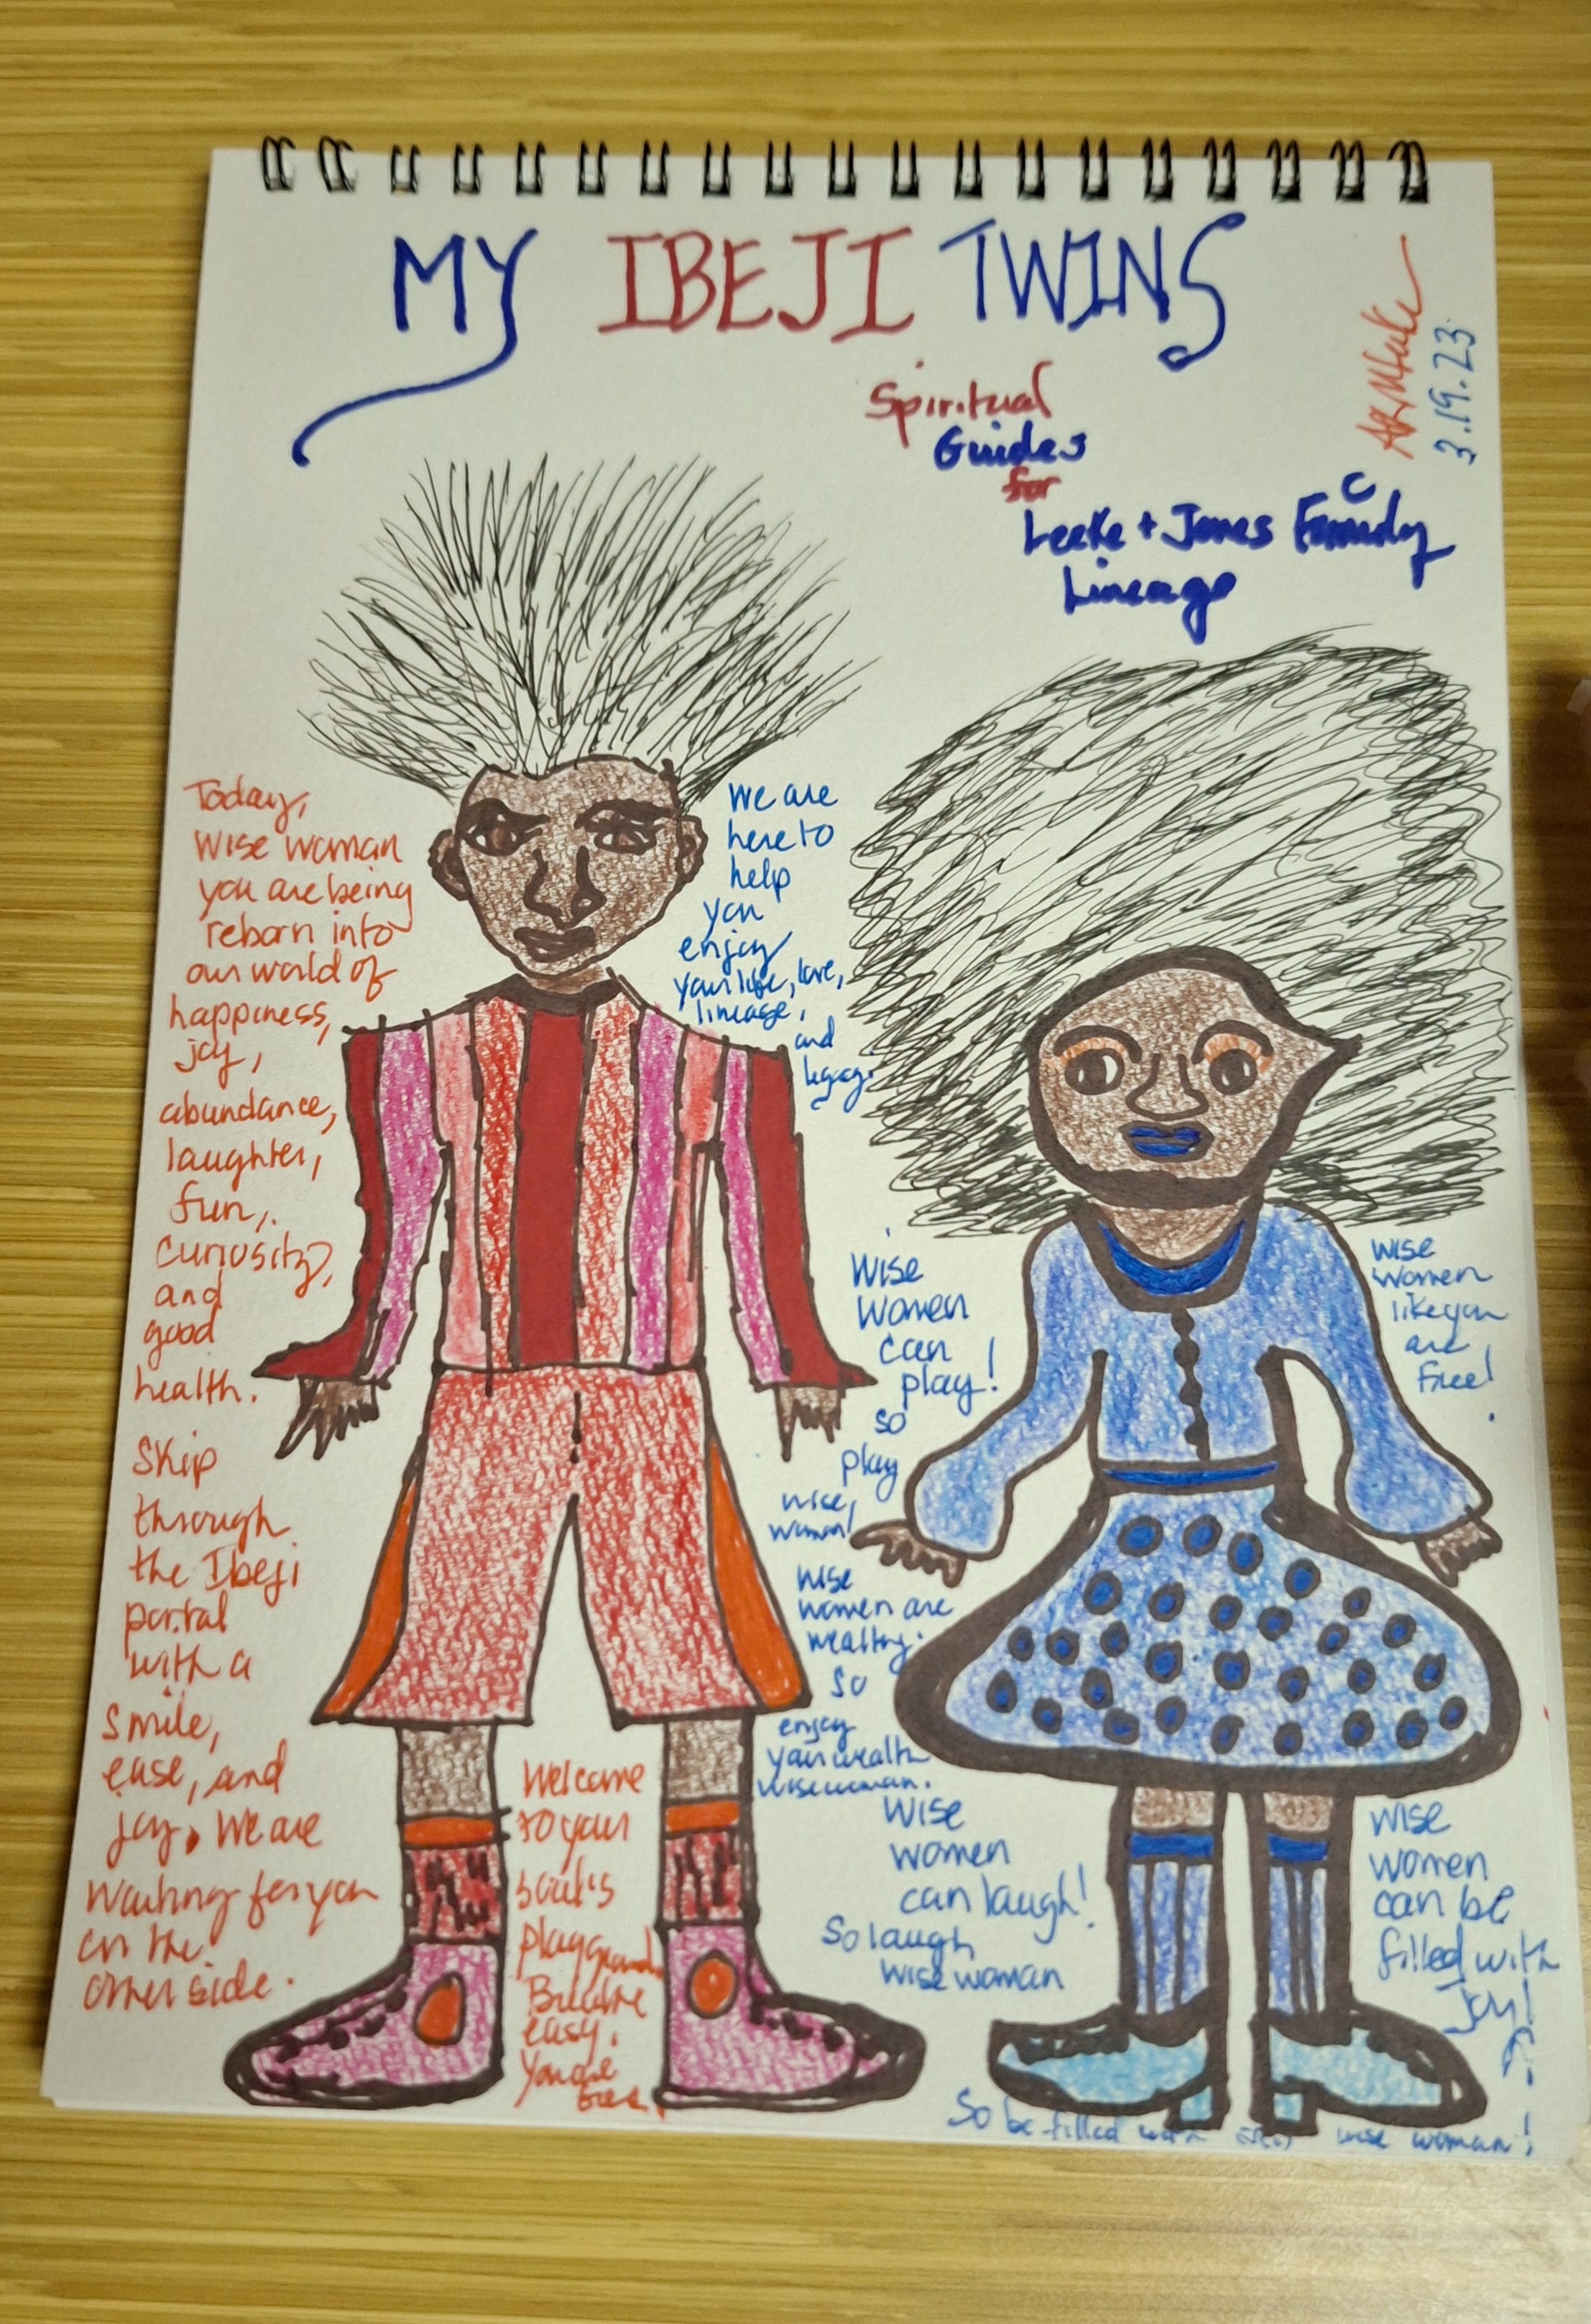 MY IBEJI TWINS
3.19.23
Spiritual
Guides
for
Leeke + Jones Family
Lineage
Today,
wise woman
you are being
reborn into
our world of
happiness,
joy,
abundance,
laughter,
fun,
curiosity,
and
good
health.
Skip
through
the Ibeji
portal
with a
smile,
ease, and
joy. We are
waiting for you
on the
other side.
We are
here to
help
you
enjoy
your life, love,
lineage,
and
legacy.
Welcome
to your
soul's
playground.
Breathe
easy.
You are
free!
Wise
women
can
play!
So
play
wise
woman!
Wise
women are
wealthy.
So
enjoy
your wealth
wise woman.
Wise
women
can laugh!
So laugh
wise woman
Wise
women
like you
are
free!
Wise
women
can be
filled with
Joy!
So be filled with wise woman!